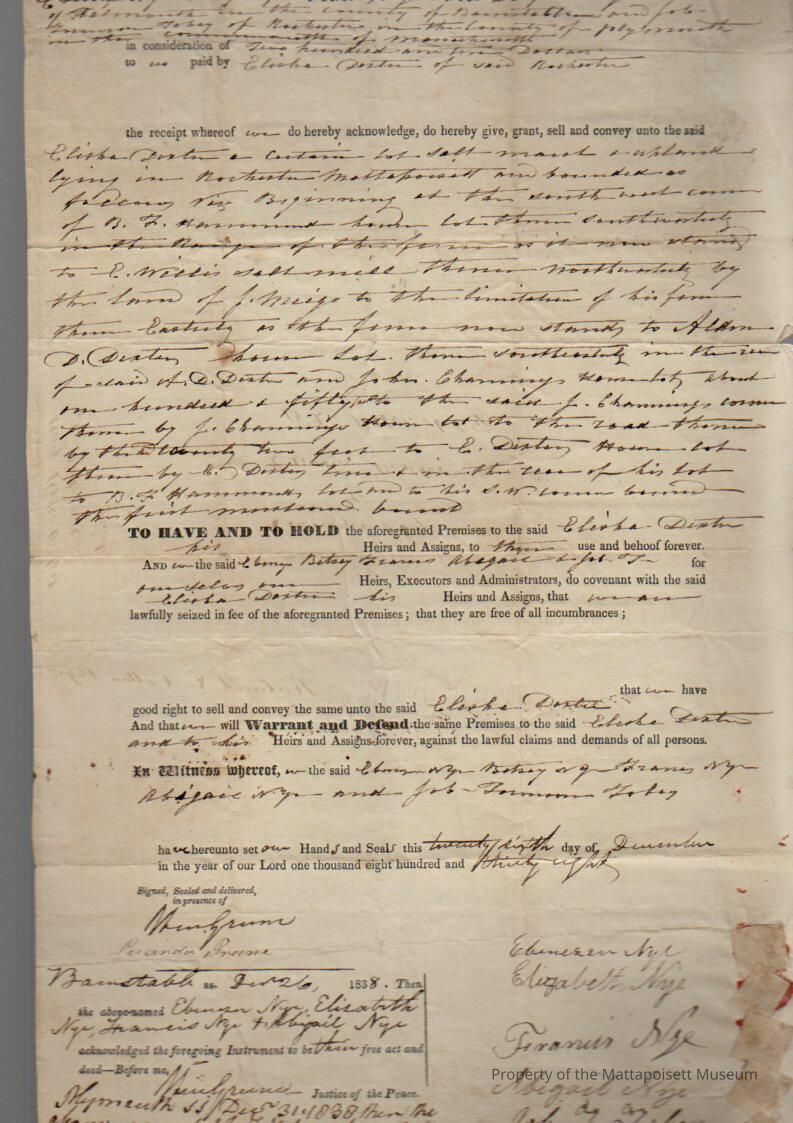 of Falmouth in the County of Barnstable and Job
Tobey of Rochester in the County of plymouth
in the commonwealth of Massachusetts
in consideration of Two hundred and Dollars
to us paid by Elisha Dexter of said Rochester
the receipt whereof we do hereby acknowledge, do hereby give, grant, sell and convey unto the said
Elisha Dexter a certain lot salt marsh & upland
lying in Rochester Mattapoisett and bounded as
follows Viz Beginning at the south west corner
of B. F. Hammond house lot thence southwesterly
in the Range of the fence as it now stands
to E. Willis salt mill thence northwesterly by
the land of J. Meigs to the limitation of his fence
thence Easterly as the fence now stands to
D. Dexter house lot thence southeasterly in the rear
of said A. D. Dexter and John Channings House lots about
one hundred & fifty to the said J. Channings corner
thence by J. Channings House lot to the road thence
by the twenty two feet to E. Dexters House lot
thence by E. Dexters line & in the rear of his lot
to B. F. Hammonds lot and to his S. W. corner bound
the first mentioned bound
TO HAVE AND TO HOLD the aforegranted Premises to the said Elisha Dexter
his Heirs and Assigns, to their use and behoof forever.
AND we the said Betsey Francis Abigail & Job T. for
ourselves our Heirs, Executors and Administrators, do covenant with the said
Elisha Dexter his Heirs and Assigns, that we are
lawfully seized in fee of the aforegranted Premises; that they are free of all incumbrances;
that we have
good right to sell and convey the same unto the said Elisha Dexter
And that we will Warrant and Defend the same Premises to the said Elisha Dexter
and to his Heirs and Assigns forever, against the lawful claims and demands of all persons.
In Witness whereof, we the said Nye Betsey Nye Francis Nye
Abigail Nye and Job Tobey
have hereunto set our Hands and Seals this twenty sixth day of December
in the year of our Lord one thousand eight hundred and thirty eight
Signed, Sealed and delivered,
in presence of
Greene
Greene
Ebenezer Nye
Elizabeth Nye
Francis Nye
Abigail Nye
Barnstable ss. Dec 26, 1838. Then
the above-named Ebenezer Nye, Elisabeth
Nye, Francis Nye & Abigail Nye
acknowledged the foregoing Instrument to be their free act and
deed—Before me,
Justice of the Peace.
Plymouth ss Dec 31, 1838, then the
Property of the Mattapoisett Museum